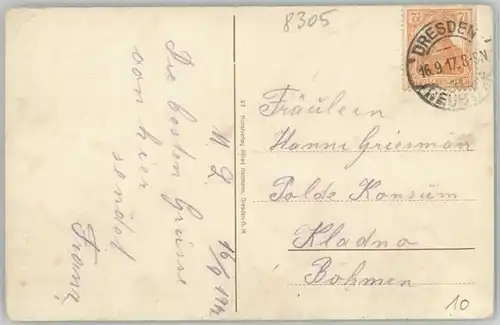 8305
7½ 7½
DRESDEN
16.9.17. 8-9V
NEUST
M. L. 16/9 1917
Die besten Grüsse
von hier
sendet
Franz
37 Kunstverlag Alfred Hartmann, Dresden-N. 14
Fräulein
Hanni Griesman
Polde Konsum
Kladno
Böhmen
10